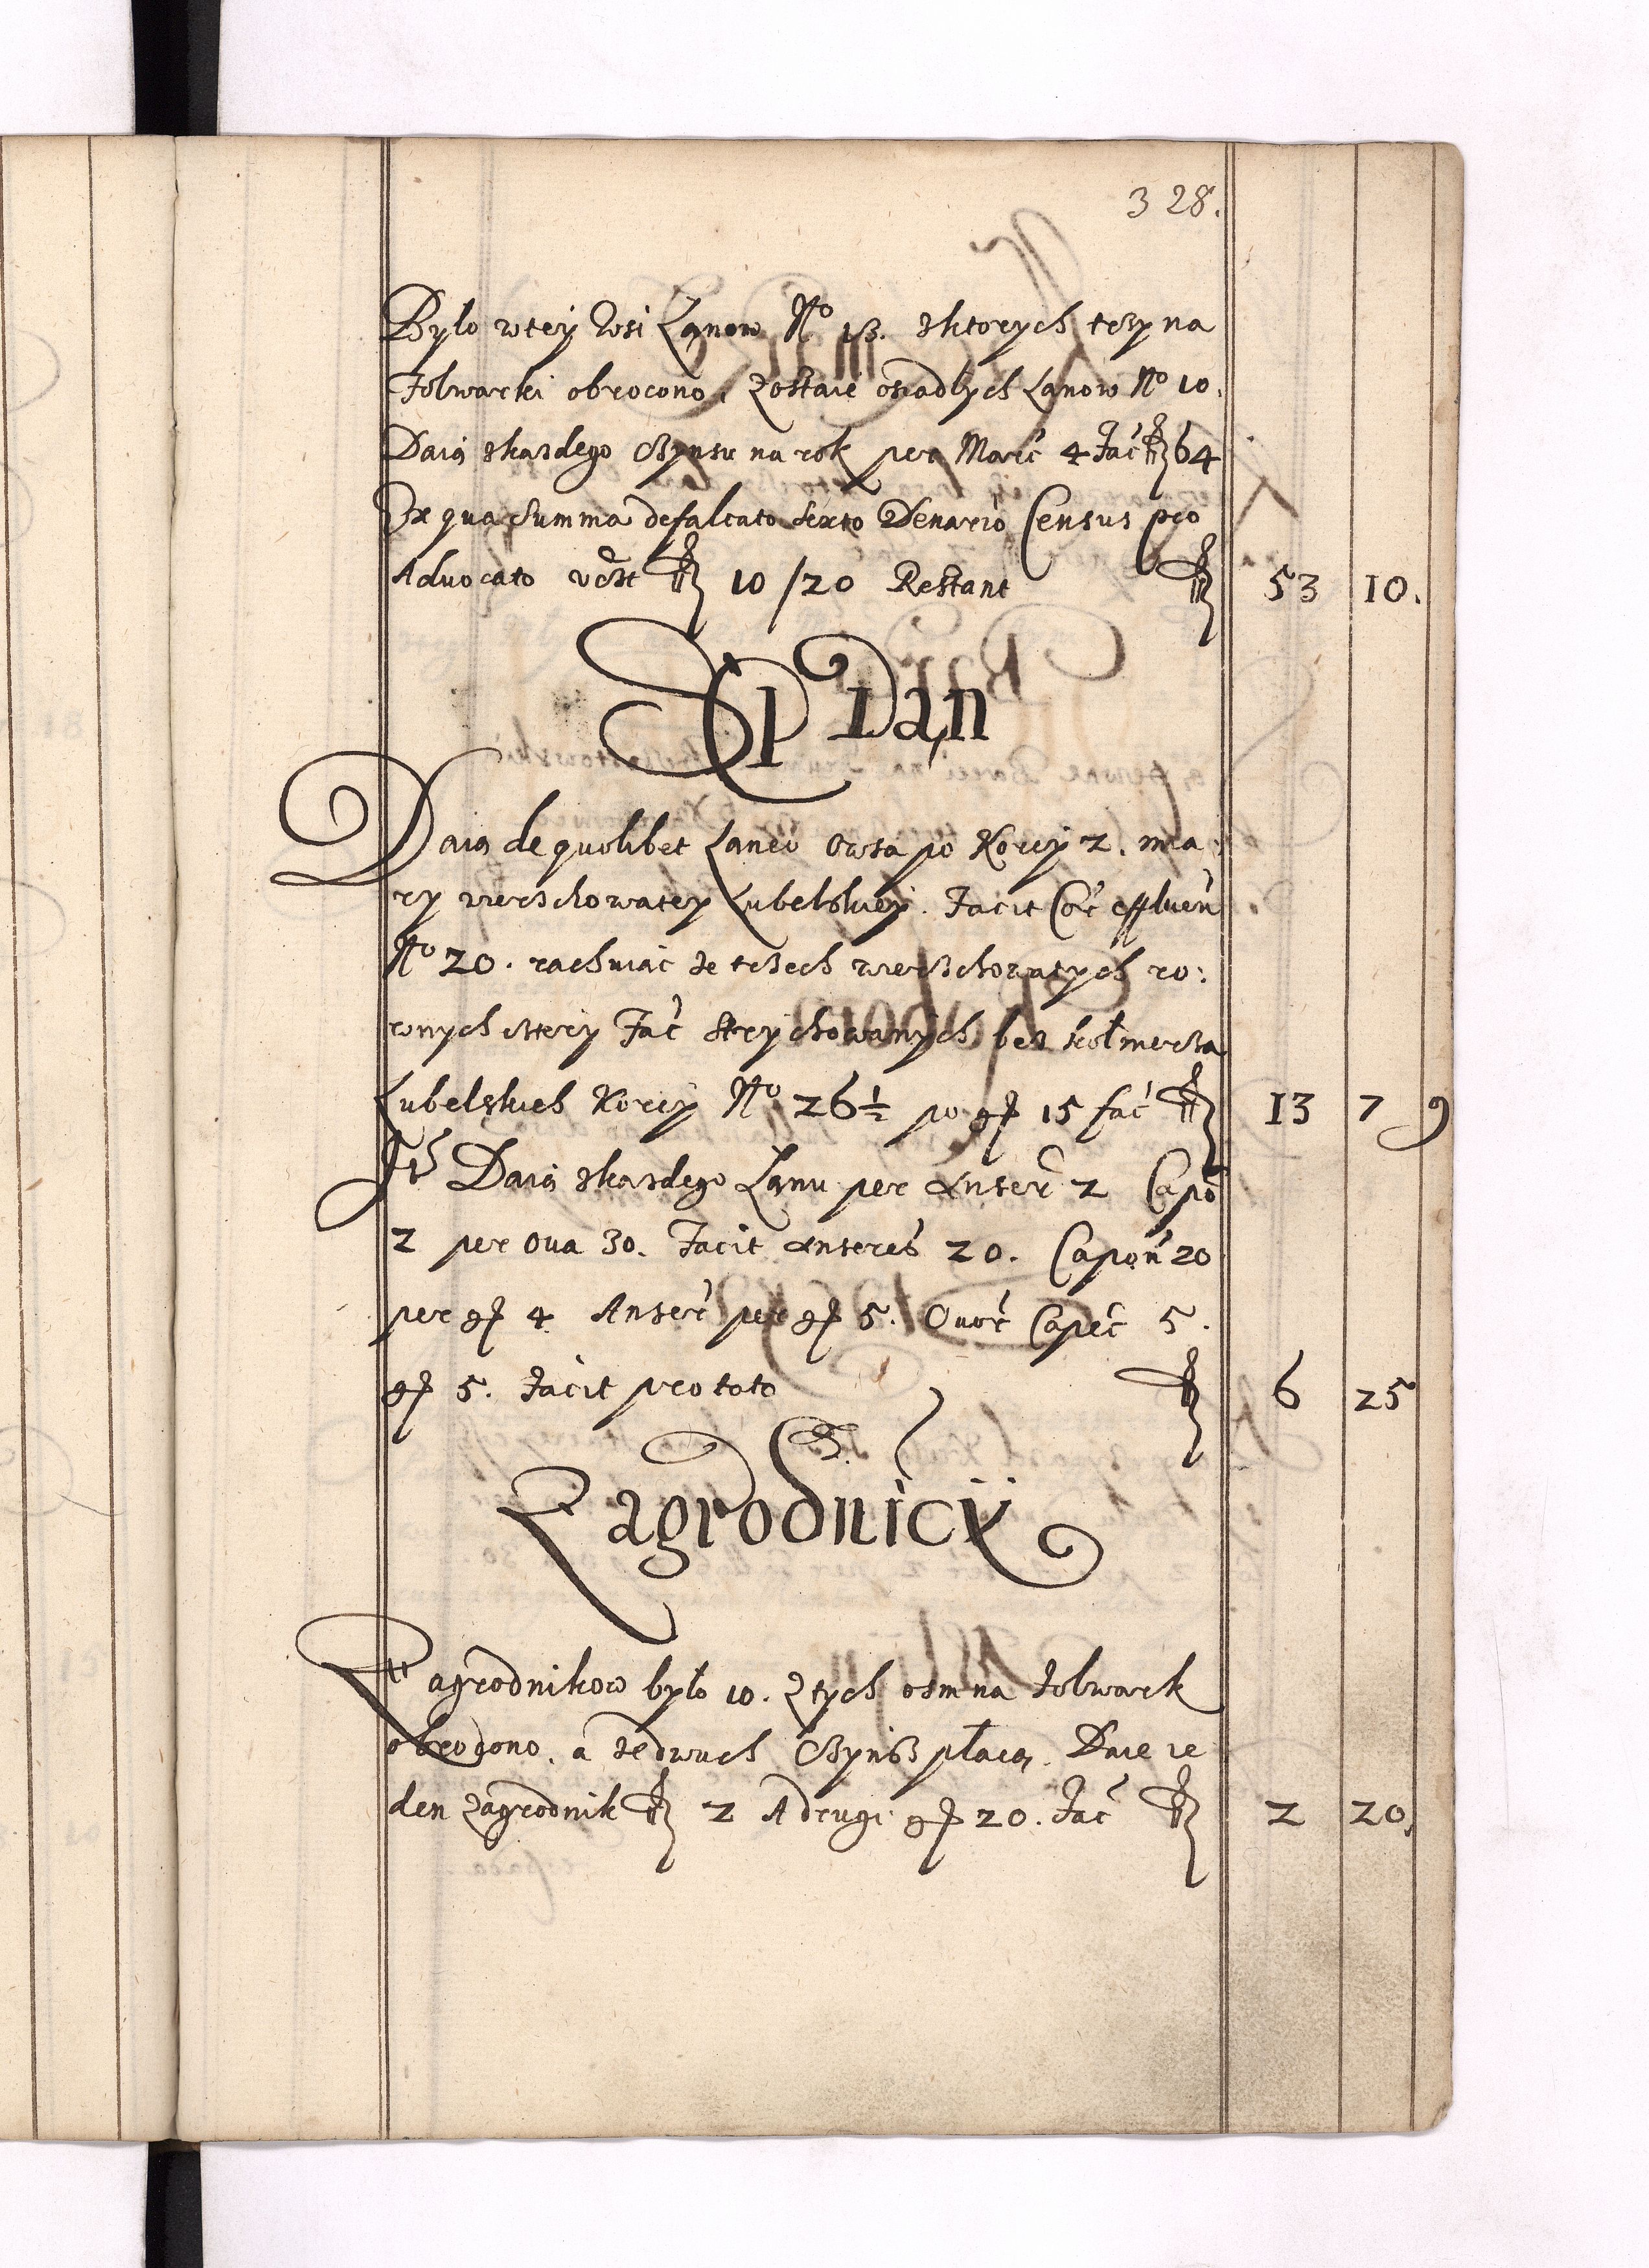 328.
Bylo wtey Wsi Łanow No 13. zktorych trzy na
Folwarki obrocono, Zostaie osiadlych Łanow No 10.
Daią zkazdego Czynsu na rok per Marc 4 Fac fl 64
Ex qua Summa defalcato sexto Denario Census pro
Advocato vdzt fl 10/20 Restant fl 53 10.
SP Dan
Daią de quolibet Laneo Owsa po Korcy 2. mia
ry wierzchowatey Lubelskiey. Facit Cor effluen
No 20. rachuiąc ze trzech wierzchowatych ro:
wnych cztery Fac strychowanych bez kolmerza
Lubelskich Korcy No 26½ po gr 15 fac fl 13 7 9
It Daią zkazdego Łanu per Anser 2 Capo
2 per Ova 30. Facit Anseres 20. Capon 20
per gr 4 Anser per gr 5. Ovor Capec 5.
gr 5. Facit pro toto fl 6 25
Zagrodnicy
Zagrodnikow bylo 10. Ztych osm na Folwark
obrocono. a ze dwuch Czynsz płacą. Daie ie
den Zagrodnik fl 2 A drugi gr 20. Fac fl 2 20.